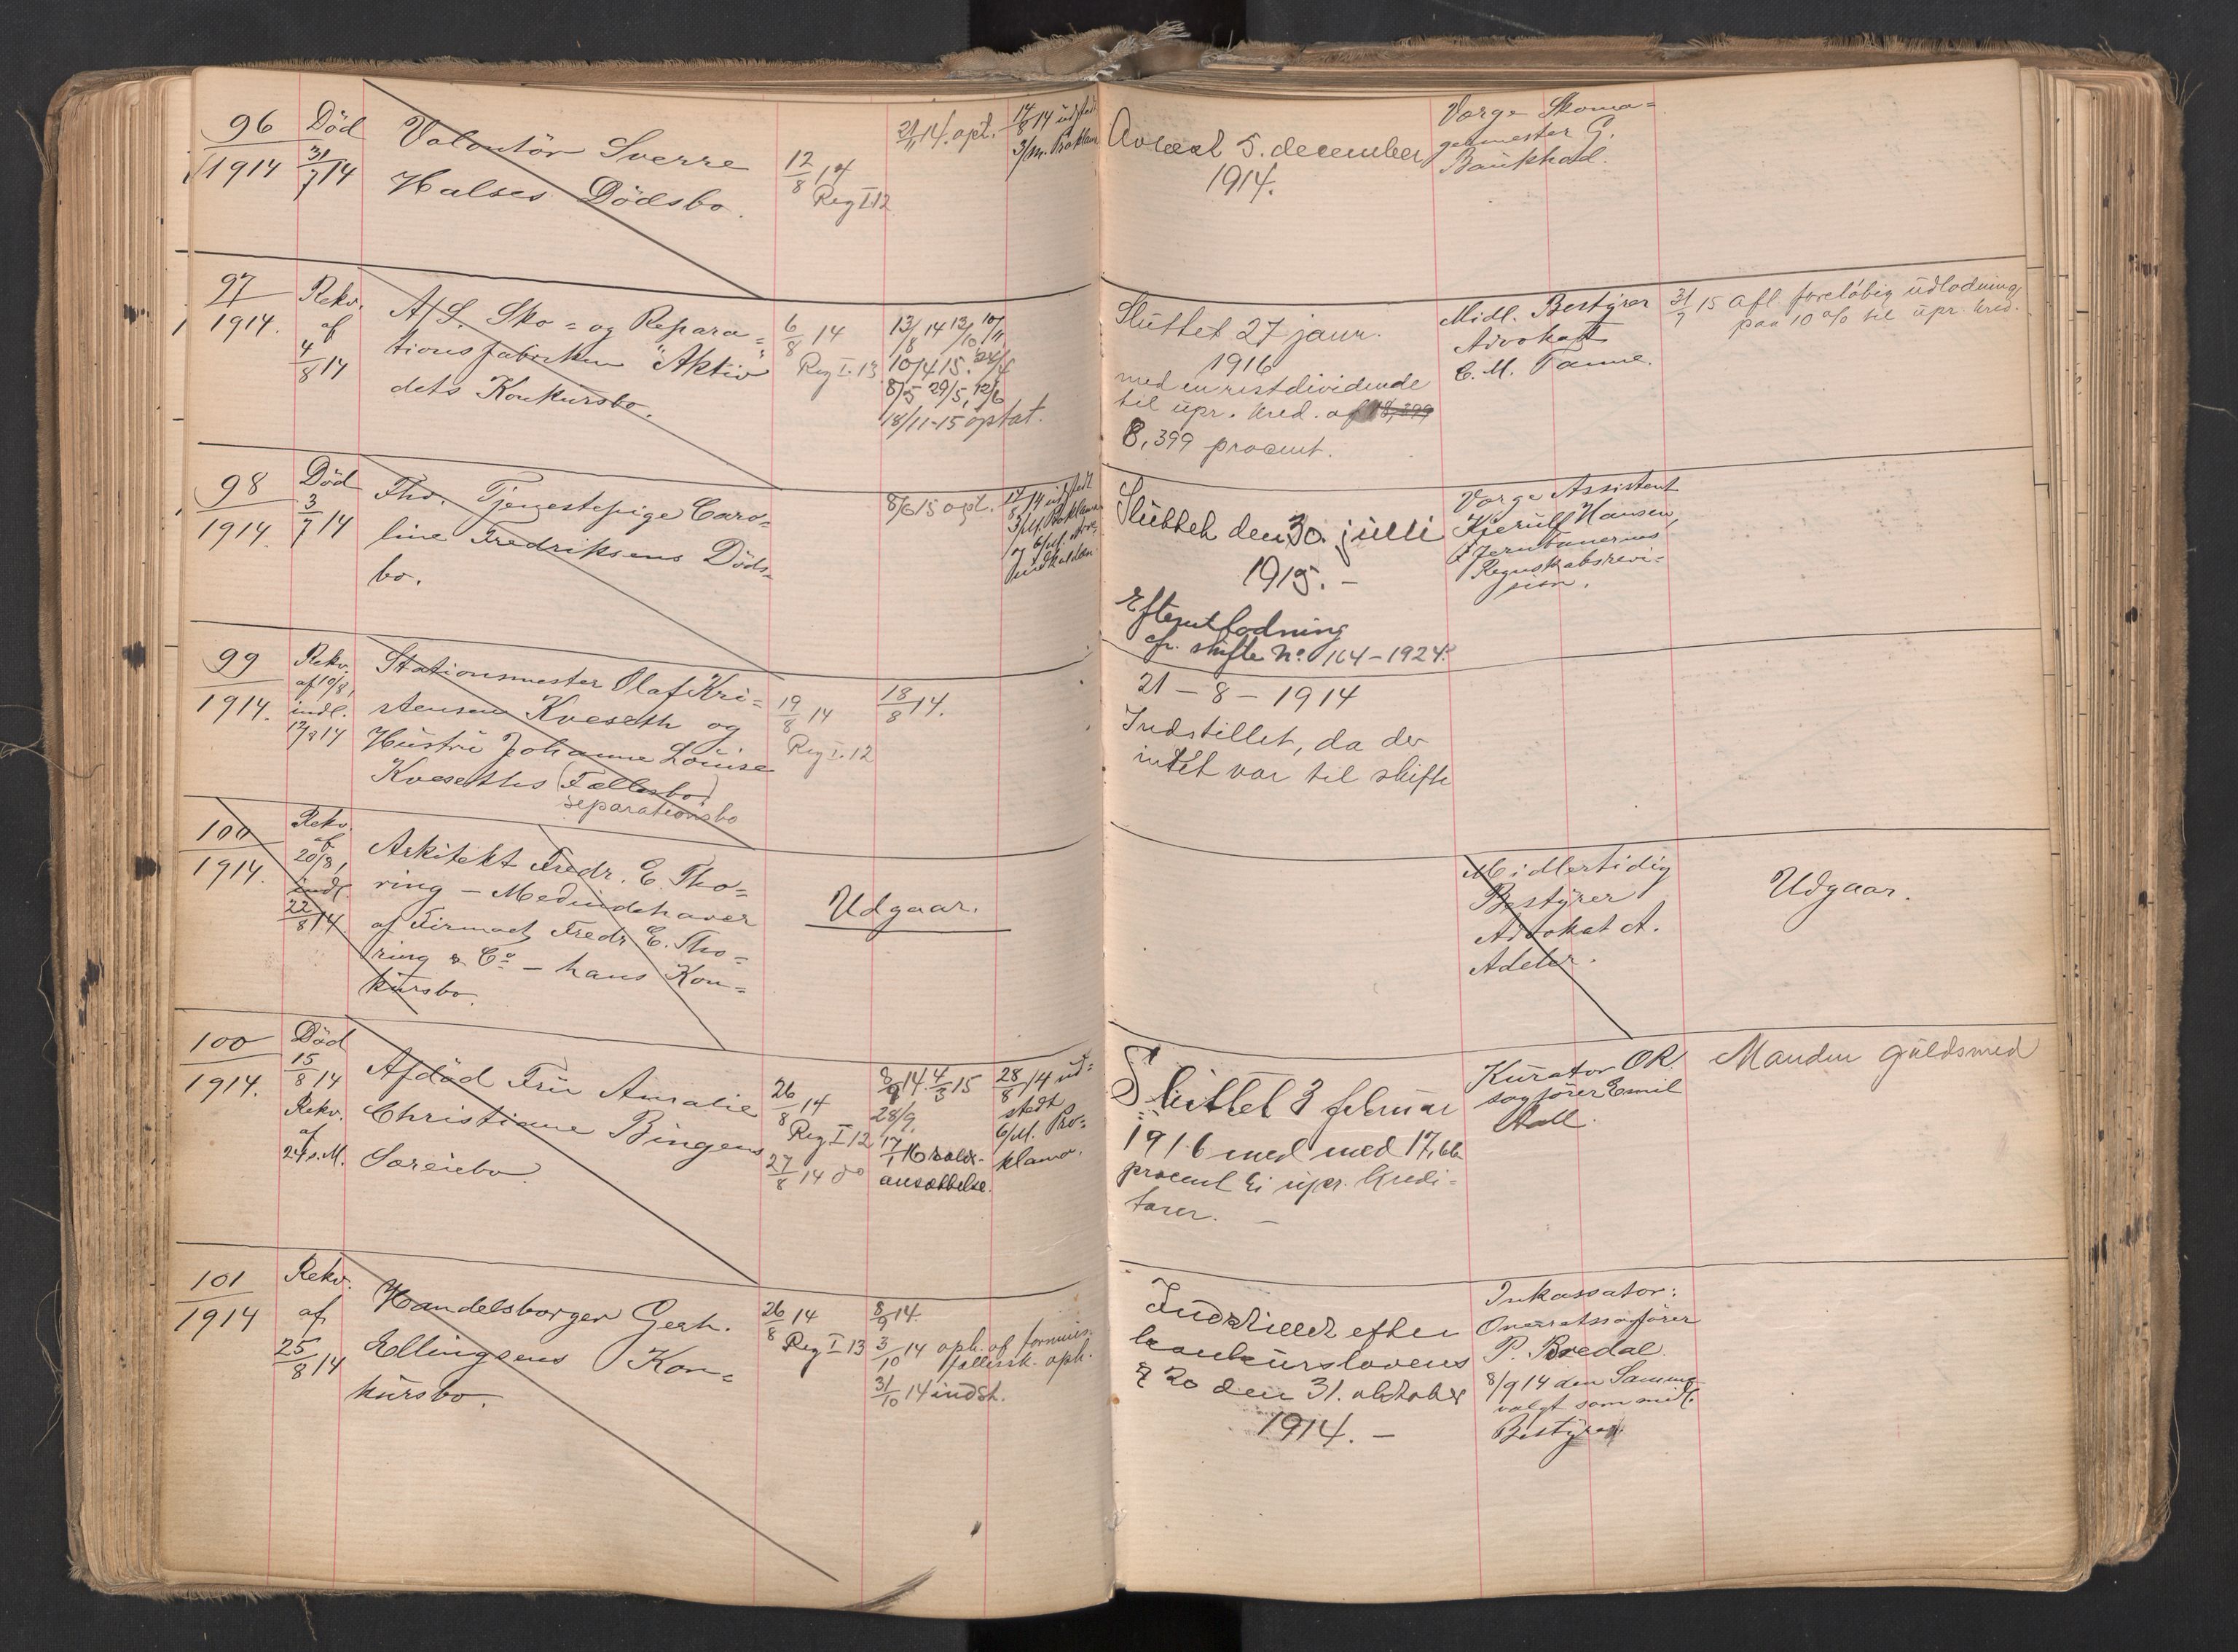 96
1914
Död
31/7 14
Volontör Sverre
Halses Dödsbo.
12/8 14
Reg I 12
21/11 14. opt.
17/8 14 udstedt
3/m. Proklama
Avleed 5. december
1914.
Værge Skoma=
germester G.
97
1914.
Rekv.
af
4/8 14
A/S. Sko= og Repara=
tionsfabriken "Aktiv"
dets Konkursbo.
6/8 14
Reg I. 13
13/8 14 13/10 10/11
10/4 15. 24/4
8/5 29/5, 12/6
18/11-15 optat.
Sluttet 27 janr.
1916
med en restdividende
til upr. kred. af 18,399
8,399 procent.
Midl. Bestyrer
Advokat
C. M. Tanne.
31/7 15 Afl. foreløbig udlodning
paa 10 % til upr. kred.
98
1914.
Död
3/7 14
Fhv. Tjenestepige Caro=
line Fredriksens Döds=
bo.
8/6 15 opt.
17/8 14 udstedt
3/M. Proklama
og 6/M. Arve
indkalden
Sluttet den 30. juli
1915. –
Efterutlodning
cfr. skifte No. 164 – 1924.
Værge Assistent
Kierulf Hansen,
Jernbanernes
Regnskabsrevi=
sion.
99
1914.
Rekv.
af 10/8,
indl.
12/8 14
Stationsmester Olaf Kri=
stensen Kveseth og
Hustru Johanne Louise
Kveseths (Fællesbo)
separationsbo
19/8 14
Reg I. 12
18/8 14.
21 – 8 – 1914
Indstillet, da der
intet var til skifte
100
1914.
Rekv.
af
20/8,
indl.
22/8 14
Arkitekt Fredr. E. Tho=
ring – Medindehaver
af Firmaet Fredr. E. Tho=
ring & Co – hans Kon=
kursbo.
Udgaar.
Midlertidig
Bestyrer
Advokat A.
Adeler.
Udgaar.
100
1914.
Död
15/8 14
Rekv.
af
24 s. M.
Afdöd Fru Amalie
Christiane Bingens
Særeiebo
26/8 14
Reg I 12
27/8 14 do
8/9 14. 4/3 15
28/9.
17/1 16
ansættelse.
28/8 14 ud=
stedt
6/M. Pro=
klama.
Sluttet 3 februar
1916 med med 17,66
procent til upr. kredi=
torer. –
Kurator OR.
sagförer Emil
Stall.
Manden guldsmed
101
1914
Rekv.
af
25/8 14
Handelsborger Gerh.
Ellingsens Kon=
kursbo.
26/8 14
Reg I 13
8/9 14.
3/10 14 oph. af formues.
fallissk. oph.
31/10 14 indst.
Indstillet efter
konkurslovens
§ 20 den 31. oktober
1914. –
Inkassator:
Overretssagförer
P. Bredal.
8/9 14 den Samme
valgt som midl.
Bestyrer.